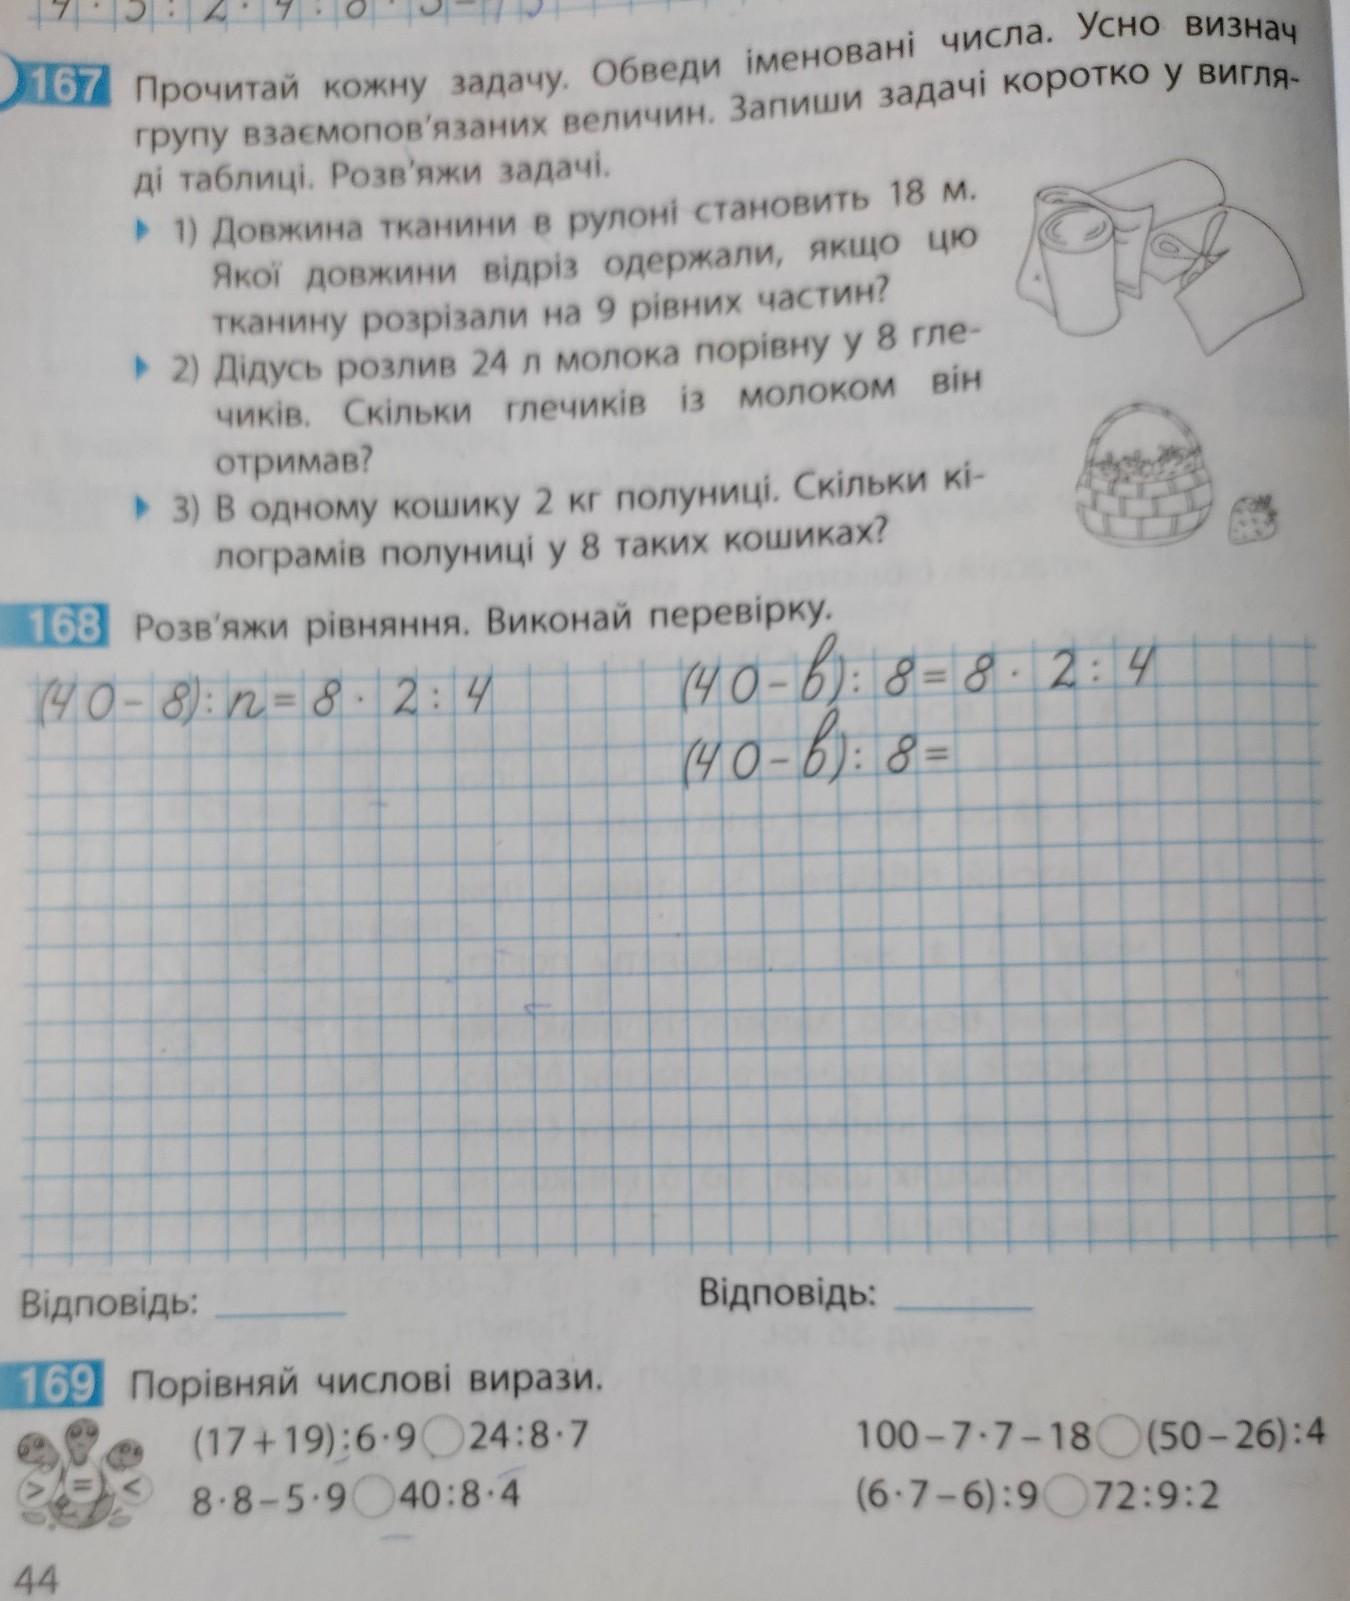 167 Прочитай кожну задачу. Обведи іменовані числа. Усно визнач
групу взаємопов'язаних величин. Запиши задачі коротко у вигля-
ді таблиці. Розв'яжи задачі.
1) Довжина тканини в рулоні становить 18 м.
Якої довжини відріз одержали, якщо цю
тканину розрізали на 9 рівних частин?
2) Дідусь розлив 24 л молока порівну у 8 гле-
чиків. Скільки глечиків із молоком він
отримав?
3) В одному кошику 2 кг полуниці. Скільки кі-
лограмів полуниці у 8 таких кошиках?
168 Розв'яжи рівняння. Виконай перевірку.
(40-8):n=8·2:4
(40-b):8=8·2:4
(40-b):8=
Відповідь:
Відповідь:
169 Порівняй числові вирази.
> = <
(17+19):6·9 24:8·7
100-7·7-18 (50-26):4
8·8-5·9 40:8·4
(6·7-6):9 72:9:2
44